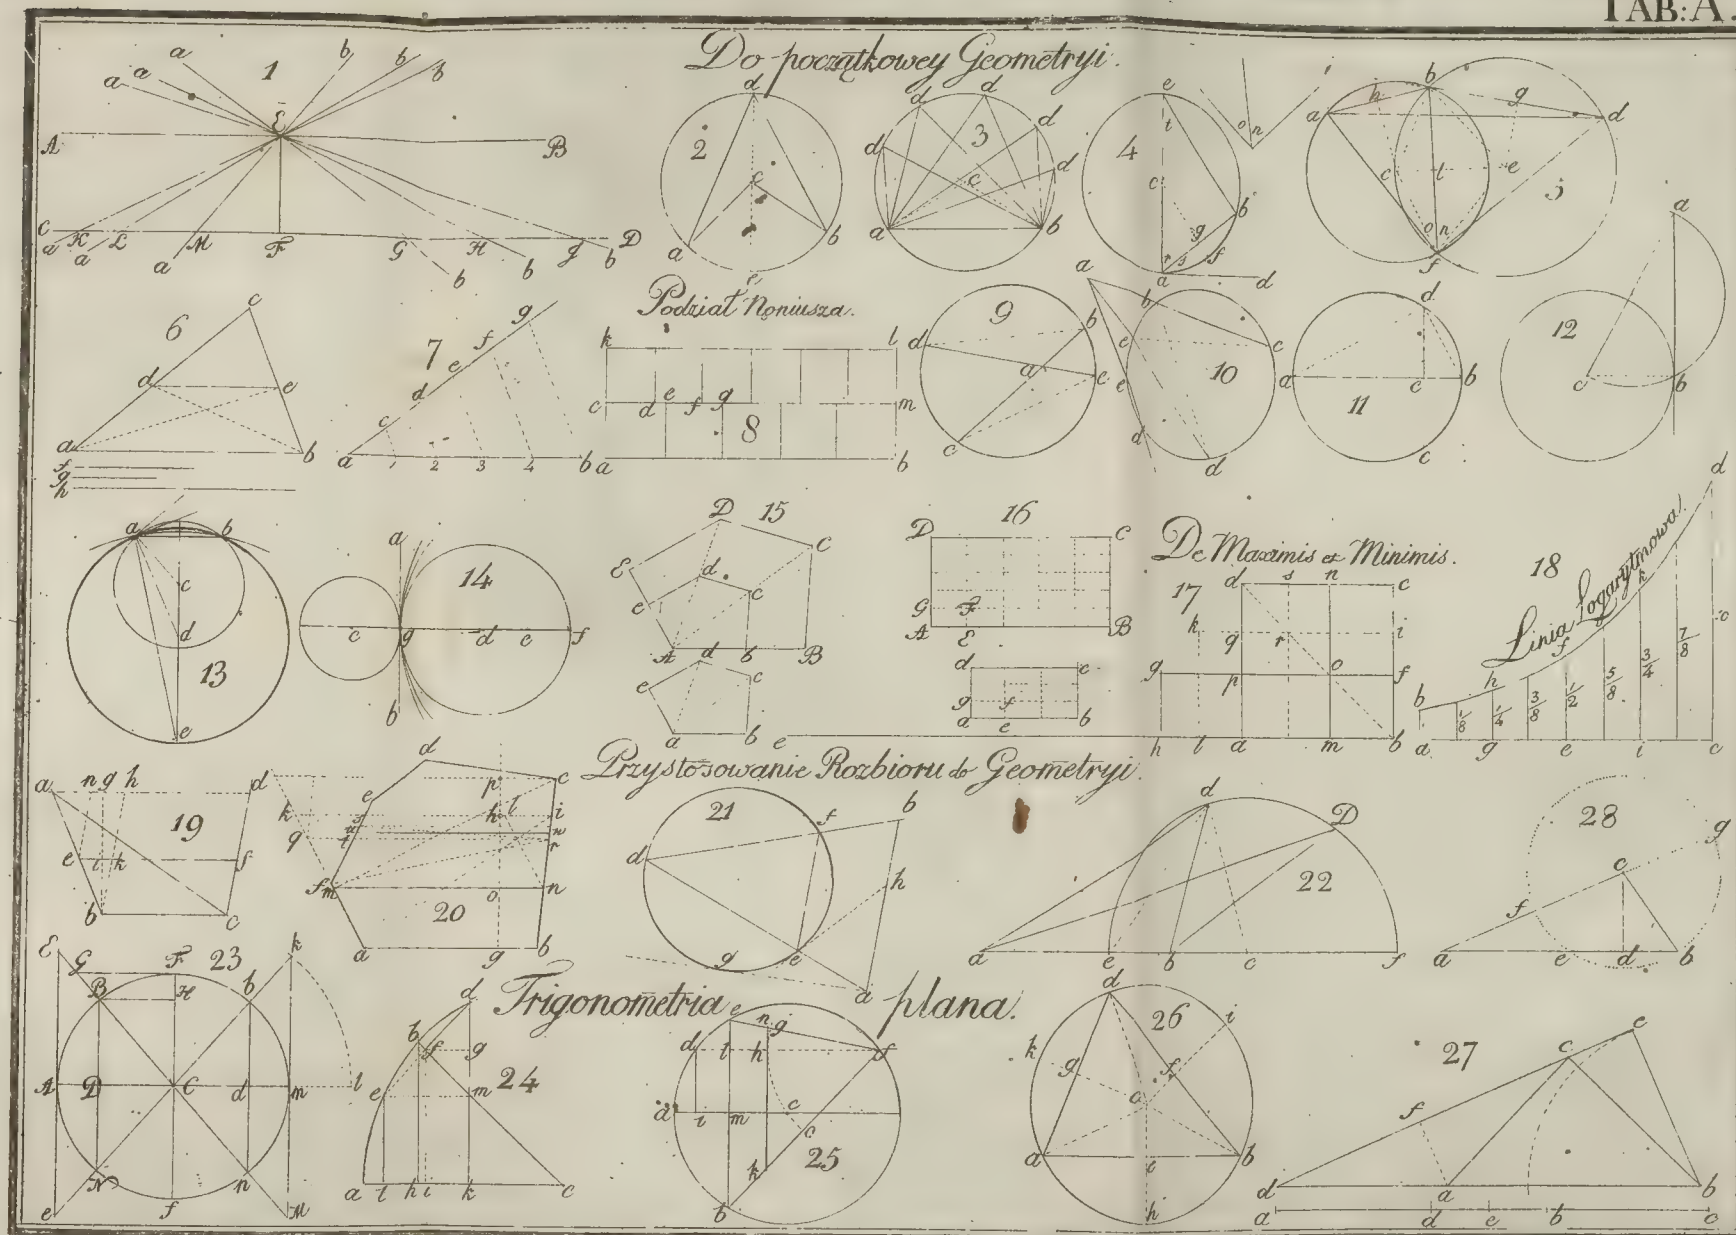 TAB: A.
Do początkowey Geometryi.
1
a a a b b b
E
A B
C K L M F G H g D
a a a b b b
2
d
c
a b
e
3
d d d d d
c
a b
4
e
t
c
b
g
r s f
a d
o n
5
a h b g d
c l e
o n
f
6
c
d e
a b
f
g
h
7
g
f
e
d
c
a 1 2 3 4 b
Podział Noniusza.
k l
c d e f g m
8
a b
9
d b
a e
c
10
a
b
e c
e
d d
11
d
a c b
c
12
a
c b
13
a b
c
d
e
14
a
c g d e f
b
15
D
C
E
d
e c
A b B
d
e c
a b
16
D C
G F
A E B
d c
g f
a e b
De Maximis et Minimis.
17
d s n c
k q r i
g p o f
e h l a m b
18
Linia Logarytmowa.
d
k
f
h
b
1/8 1/4 3/8 1/2 5/8 3/4 7/8
a g e i c
Przystosowanie Rozbioru do Geometryi.
19
a n g h d
e i k f
b c
20
d
e p c
k h l i
q r
f m o n
a g b
21
f b
d
h
g e
a
22
d D
a e b c f
28
g
c
f
a e d b
Trigonometria plana.
23
E G F k
B H b
A D C d m l
N n
e f M
24
d
b f g
e m
a l h i k c
25
e n g
d l h f
a i m c
c
k
b
26
d
k i
g f
o
a c b
h
27
e
c
f
d a b
a d e b c